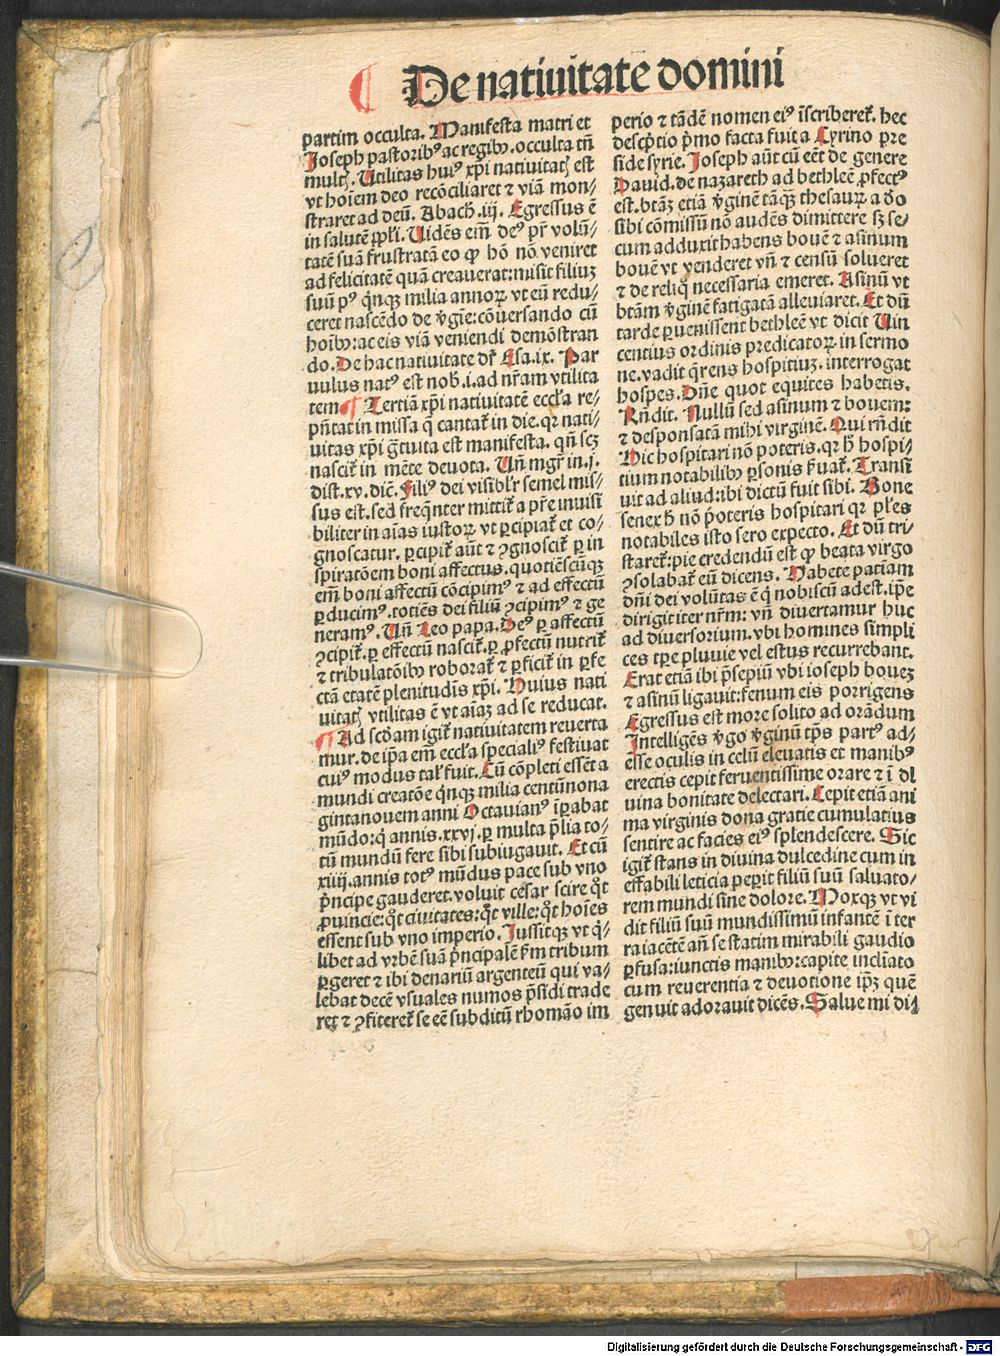 De natiuitate domini
partim occulta. Manifesta matri et
Joseph pastoribꝰ ac regibꝫ. occulta tñ
multꝭ. Utilitas huiꝰ xp̄i natiuitatꝭ est
vt hoīem deo recōciliaret ⁊ viā mon⸗
straret ad deū. Abach. iij. Egressus ē
in salutē ppl̄i. Uidēs em̄ deꝰ pr̄ volū⸗
tatē suā frustratā eo ꝙ hō nō veniret
ad felicitatē quā creauerat: misit filiuꝫ
suū pꝰ qͥnqꝫ milia annoꝝ vt eū redu⸗
ceret nascēdo de ꝟgīe: cōuersando cū
hoībꝫ: ac eis viā veniendi demōstran
do. De hac natiuitate dr̄ Esa. ix. Par
uulus natꝰ est nob̄. i. ad nr̄am vtilita
tem ¶ Tertiā xp̄i natiuitatē eccl̄ia re⸗
pn̄tat in missa q̄ cantat̄ in die. qꝛ nati⸗
uitas xp̄i gr̄tuita est manifesta. qn̄ scꝫ
nascit̄ in mēte deuota. Un̄ mgr̄ in. j.
dist. xv. dic̄. Filiꝰ dei visibl̓r semel mis⸗
sus est. sed freqn̄ter mittit̄ a pr̄e inuisi
biliter in aīas iustoꝝ vt ꝑcipiat̄ et co⸗
gnoscatur. ꝑcipit̄ aūt ⁊ ꝯgnoscit̄ ꝑ in
spiratōem boni affectus. quotiēscūqꝫ
em̄ boni affectū cōcipimꝰ ⁊ ad effectū
ꝑducimꝰ. totiēs dei filiū ꝯcipimꝰ ⁊ ge
neramꝰ. Un̄ Leo papa. Deꝰ ꝑ affectū
ꝯcipit̄. ꝑ effectū nascit̄. ꝑ ꝓfectū nutrit̄
⁊ tribulatōibꝫ roborat̄ ⁊ ꝑficit̄ in ꝑfe
ctā etatē plenitudīs xp̄i. Huius nati
uitatꝭ vtilitas ē vt aīaꝫ ad se reducat.
¶ Ad scd̄am igit̄ natiuitatem reuerta
mur. de ip̄a em̄ eccl̄ia specialiꝰ festiuat
cuiꝰ modus tal̓ fuit. Cū cōpleti essēt a
mundi creatōe qͥnqꝫ milia centūnona
gintanouem anni Octauianꝰ īꝑabat
mūdo: qͥ annis. xxvj. ꝑ multa p̄lia to⸗
tū mundū fere sibi subiugauit. Et cū
xiiij. annis totꝰ mūdus pace sub vno
pͥncipe gauderet. voluit cesar scire qͦt
ꝓuincie: qͦt ciuitates: qͦt ville: qͦt hoīes
essent sub vno imperio. Jussitqꝫ vt qͥ⸗
libet ad vrbē suā pͥncipalē ẜm tribum
ꝑgeret ⁊ ibi denariū argenteū qui va⸗
lebat decē vsuales numos p̄sidi trade
ret ⁊ ꝓfiteret̄ se eē subditū rhomāo im
perio ⁊ tādē nomen eiꝰ īscriberet̄. hec
descp̄tio pͥmo facta fuit a Cyrino pre
side syrie. Joseph aūt cū eēt de genere
Dauid. de nazareth ad bethleē ꝓfectꝰ
est. btāꝫ etiā ꝟginē tāqꝫ thesauꝝ a do
sibi cōmissū nō audēs dimittere sꝫ se⸗
cum adduxit habens bouē ⁊ asinum
bouē vt venderet vn̄ ⁊ censū solueret
⁊ de reliqͦ necessaria emeret. Asinū vt
btām ꝟginē fatigatā alleuiaret. Et dū
tarde ꝑuenissent bethleē vt dicit Uin
centius ordinis predicatoꝝ in sermo
ne. vadit q̄rens hospitiuꝫ. interrogat
hospes. Dn̄e quot equites habetis.
Rn̄dit. Nullū sed asinum ⁊ bouem:
⁊ desponsatā mihi virginē. Qui rn̄dit
Hic hospitari nō poteris. qꝛ h̄ hospi⸗
tium notabilibꝫ ꝑsonis ẜuat̄. Transi
uit ad aliud: ibi dictū fuit sibi. Bone
senex h̄ nō poteris hospitari qꝛ pl̄es
notabiles isto sero expecto. Et dū tri⸗
staret̄: pie credendū est ꝙ beata virgo
ꝯsolabat̄ eū dicens. Habete patiām
dn̄i dei volūtas ē qͥ nobiscū adest. ip̄e
dirigit iter nr̄m: vn̄ diuertamur huc
ad diuersorium. vbi homines simpli
ces tp̄e pluuie vel estus recurrebant.
Erat etiā ibi p̄sepiū vbi ioseph boueꝫ
⁊ asinū ligauit: fenum eis porrigens
Egressus est more solito ad orādum
Intelligēs ꝟgo ꝟginū tp̄s partꝰ ad⸗
esse oculis in celū eleuatis et manibꝰ
erectis cepit feruentissime orare ⁊ ī di
uina bonitate delectari. Cepit etiā ani
ma virginis dona gratie cumulatius
sentire ac facies eiꝰ splendescere. Sic
igit̄ stans in diuina dulcedine cum in
effabili leticia peꝑit filiū suū saluato⸗
rem mundi sine dolore. Moxqꝫ vt vi
dit filiū suū mundissimū infantē ī ter
ra iacētē an̄ se statim mirabili gaudio
ꝑfusa: iunctis manibꝫ: capite incliato
cum reuerentia ⁊ deuotione ip̄ꝫ quē
genuit adorauit dicēs. Salue mi di⸗
Digitalisierung gefördert durch die Deutsche Forschungsgemeinschaft - DFG